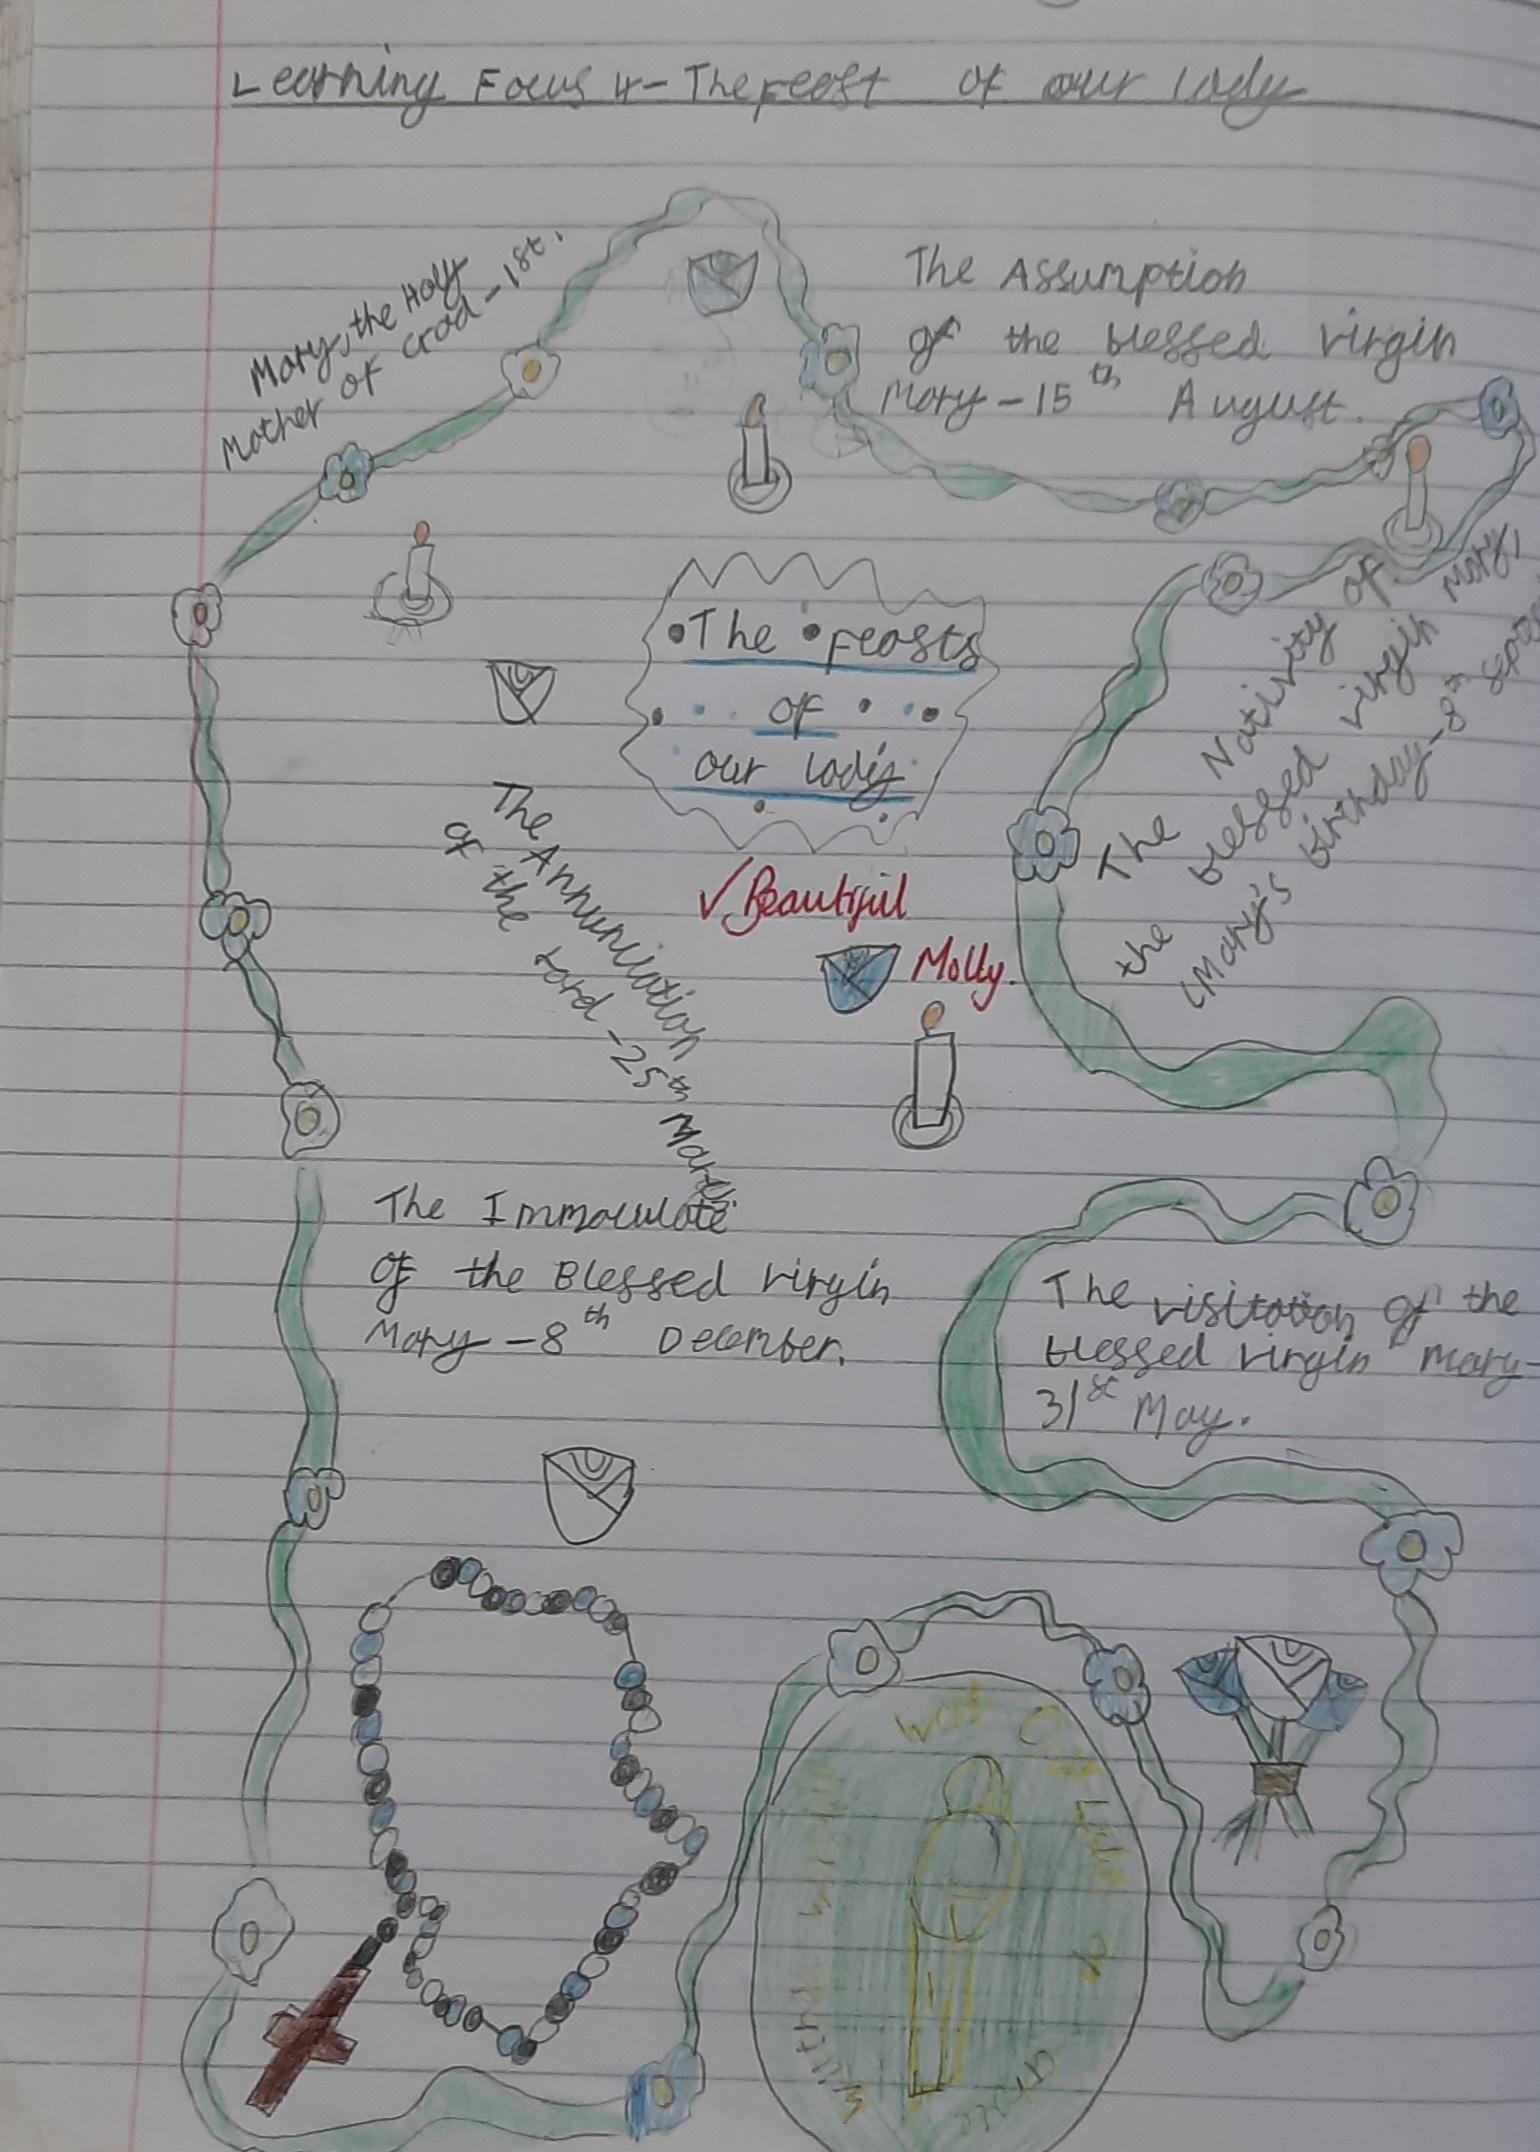 Learning Focus 4 - The feast of our lady
Mary, the Holy
Mother of Grod - 1st.
The Assumption
of the blessed virgin
Mary - 15th August.
• The • Feasts
of
our lady
The Nativity of
the blessed virgin Mary,
(Mary's birthday - 8th
The Annunciation
of the Lord - 25th March
✓ Beautiful
Molly.
The Immaculate
of the Blessed virgin
Mary - 8th December.
The visitation of the
blessed virgin Mary -
31st May.
Our Lady of